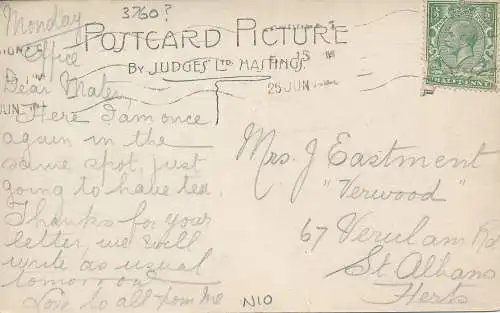 Monday
3760?
Office
POSTCARD PICTURE
BY JUDGES LTD HASTINGS
15
25 JUN
JUN
HALFPENNY
Dear Mater,
Here I am once
again in the
same spot, just
going to have tea.
Thanks for your
letter, we will
write as usual
tomorrow
Love to all from me
Mrs. J Eastment
"Verwood"
67 Verulam Rd
St Albans
Herts
N10